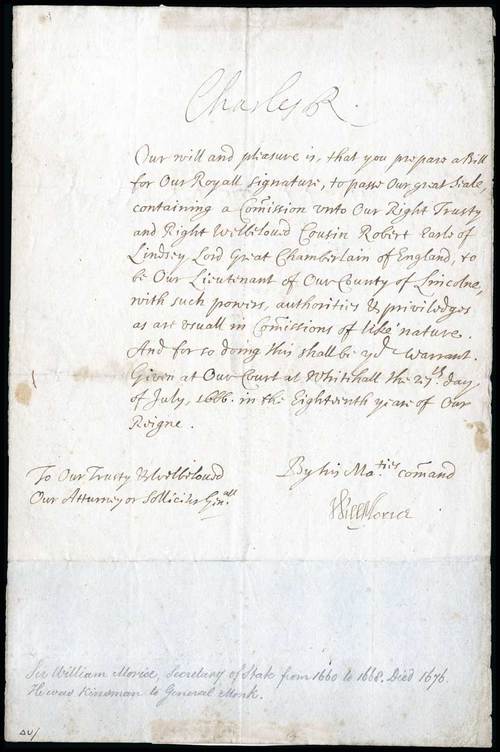 Charles R.
Our will and pleasure is, that you prepare a Bill
for Our Royall signature, to passe Our great Seale,
containing a Com̃ission vnto Our Right Trusty
and Right Welbeloved Cousin Robert Earle of
Lindsey Lord Great Chamberlain of England, to
be Our Lieutenant of Our County of Lincolne,
with such powers, authorities & priviledges
as are vsuall in Com̃issions of like nature.
And for so doing this shall be yoᵉ Warrant.
Given at Our Court at Whitehall the 27th. day
of July, 1666. in the Eighteenth yeare of Our
Reigne.
To Our Trusty & Welbeloved
Our Attorney or Sollicitr Gen.all
By his Ma.ties com̃and
Will Morice
Sir William Morice, Secretary of State from 1660 to 1668. Died 1676.
He was Kinsman to General Monk.